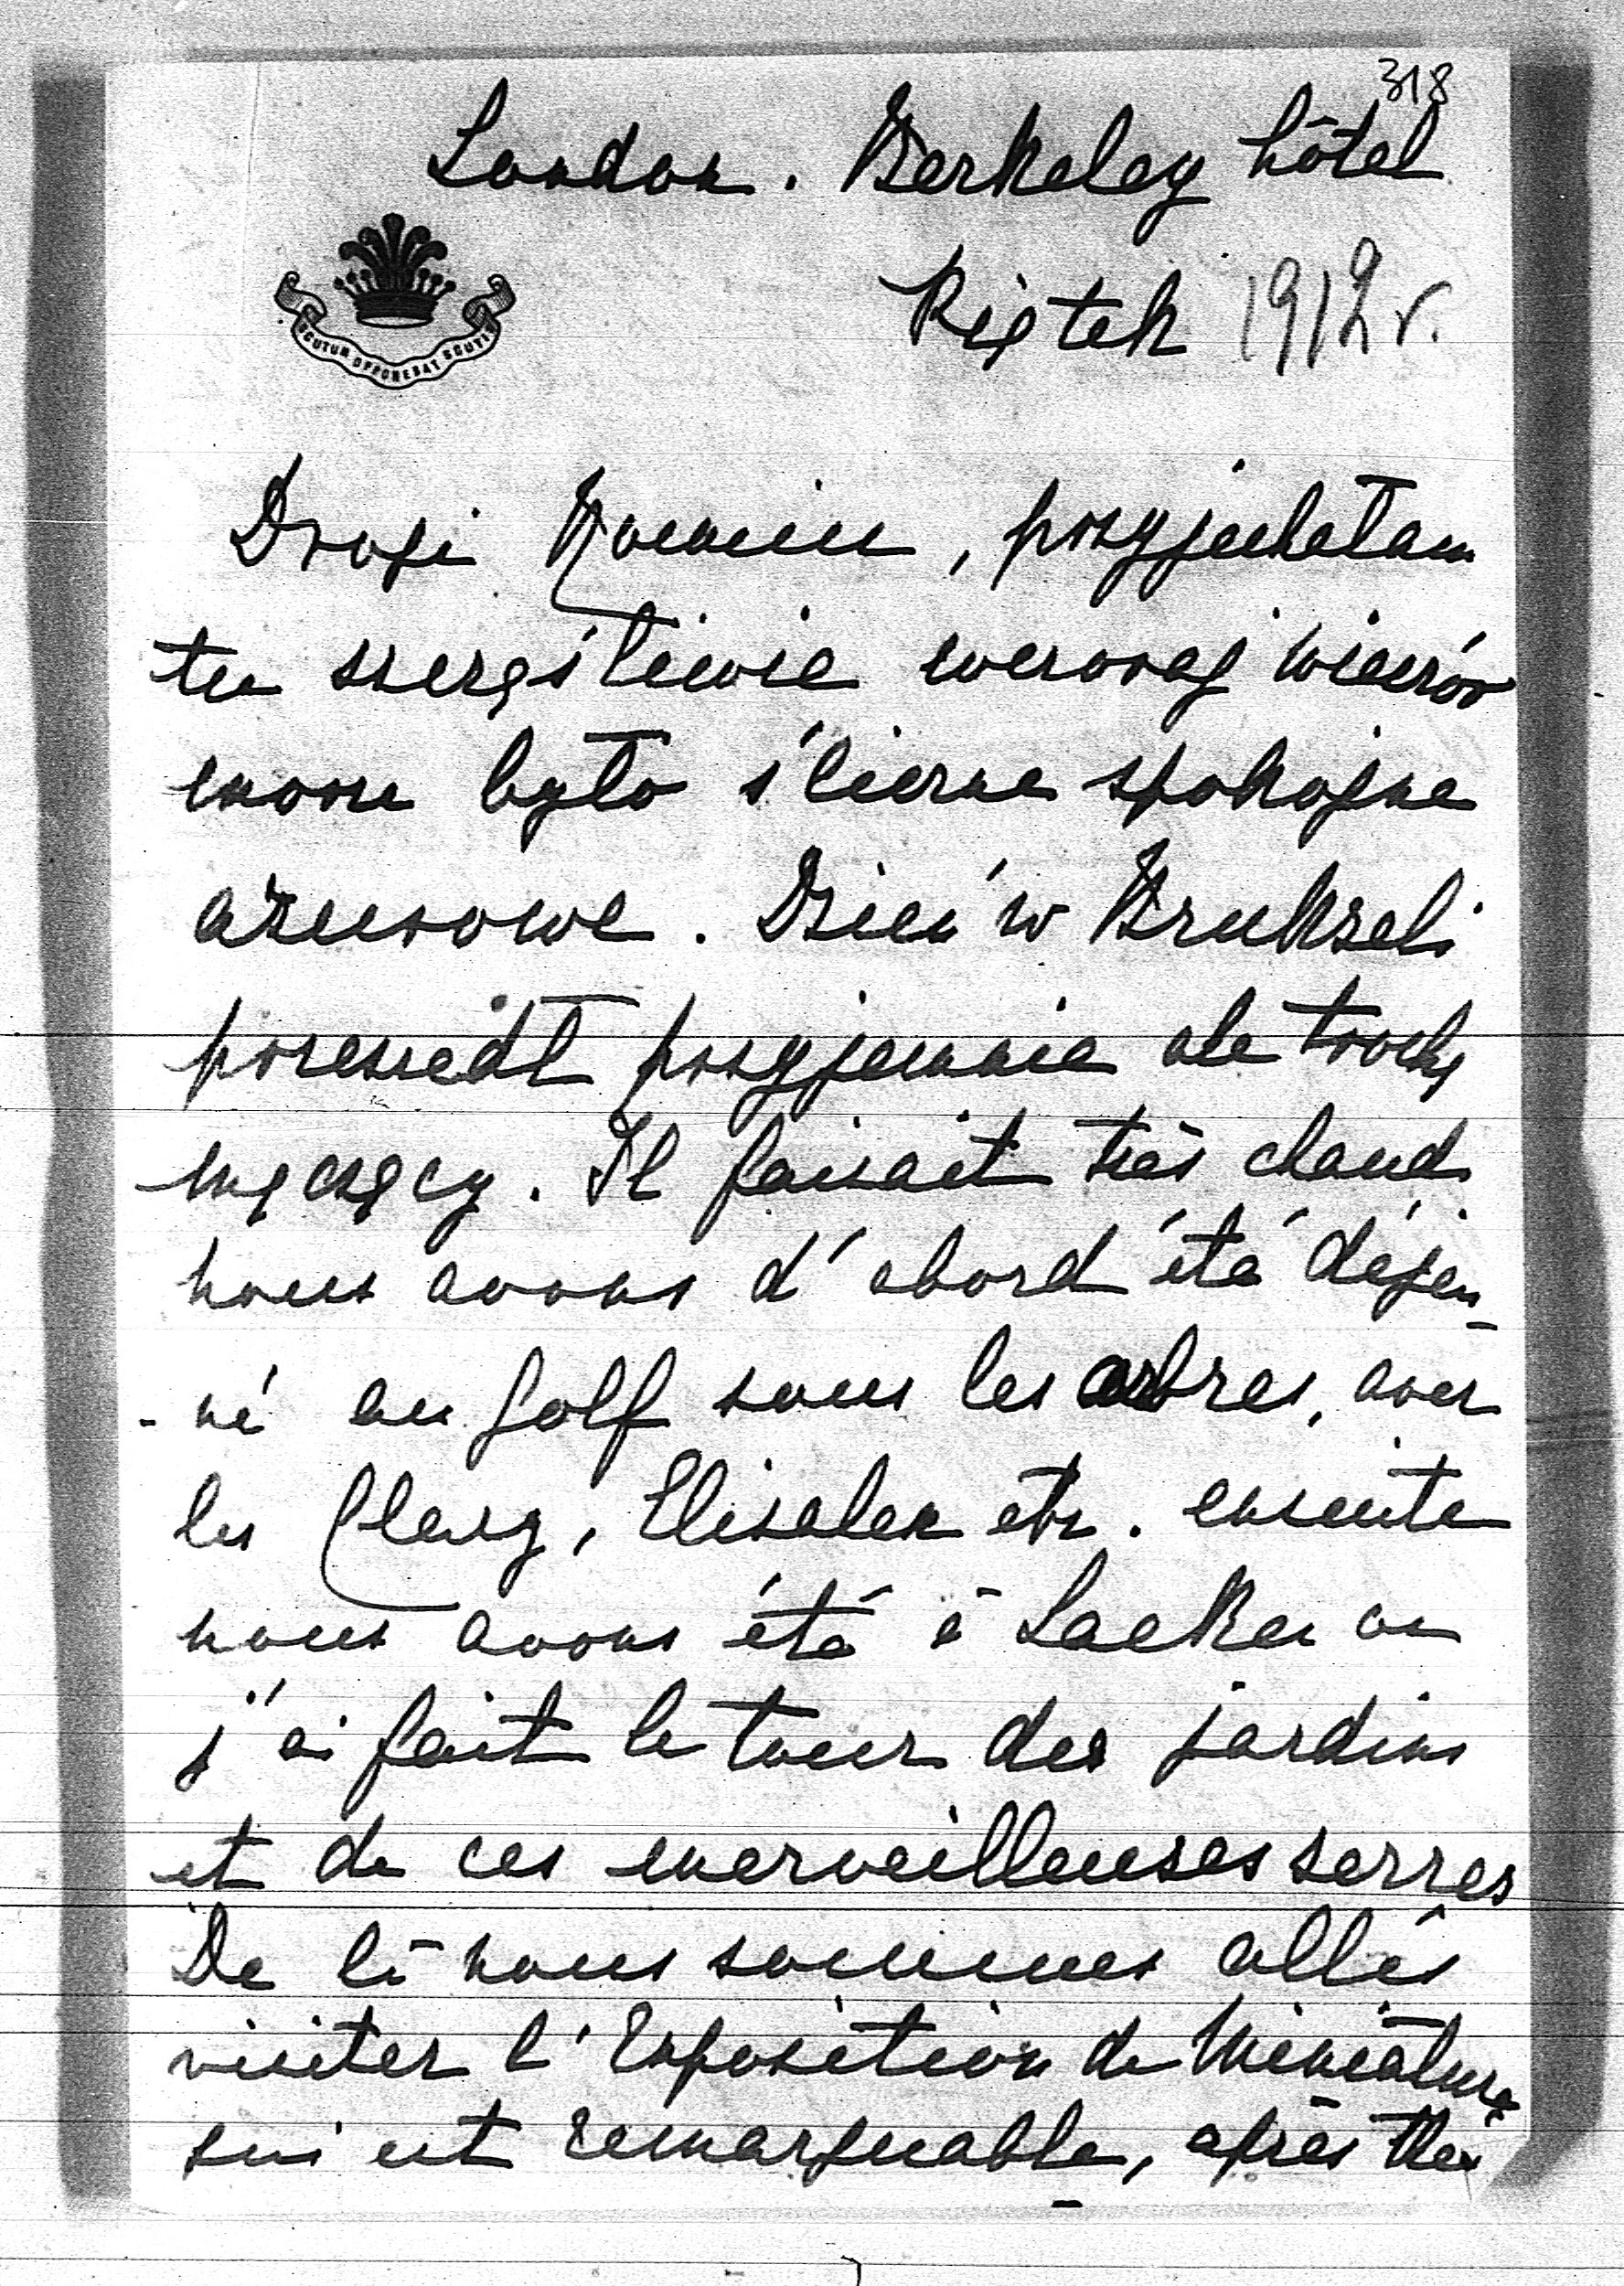 318
London. Berkeley hôtel
SCUTUM OPPONEBAT SCUTIS
Piątek 1912 r.
Drogi , przyjechałam
tu szczęśliwie wczoraj wieczór
morze było śliczne spokojne
azurowe. Dzień w Brukseli
przeszedł przyjemnie ale trochę
męczący. Il faisait très chaud
nous avons d'abord été déjeu-
-né au golf sous les arbres, avec
les Clary, etc. ensuite
nous avons été à Laeken ou
j'ai fait le tour des jardins
et de ces merveilleuses serres
De là nous sommes allés
visiter l'Exposition de Miniature
qui est remarquable, après thé